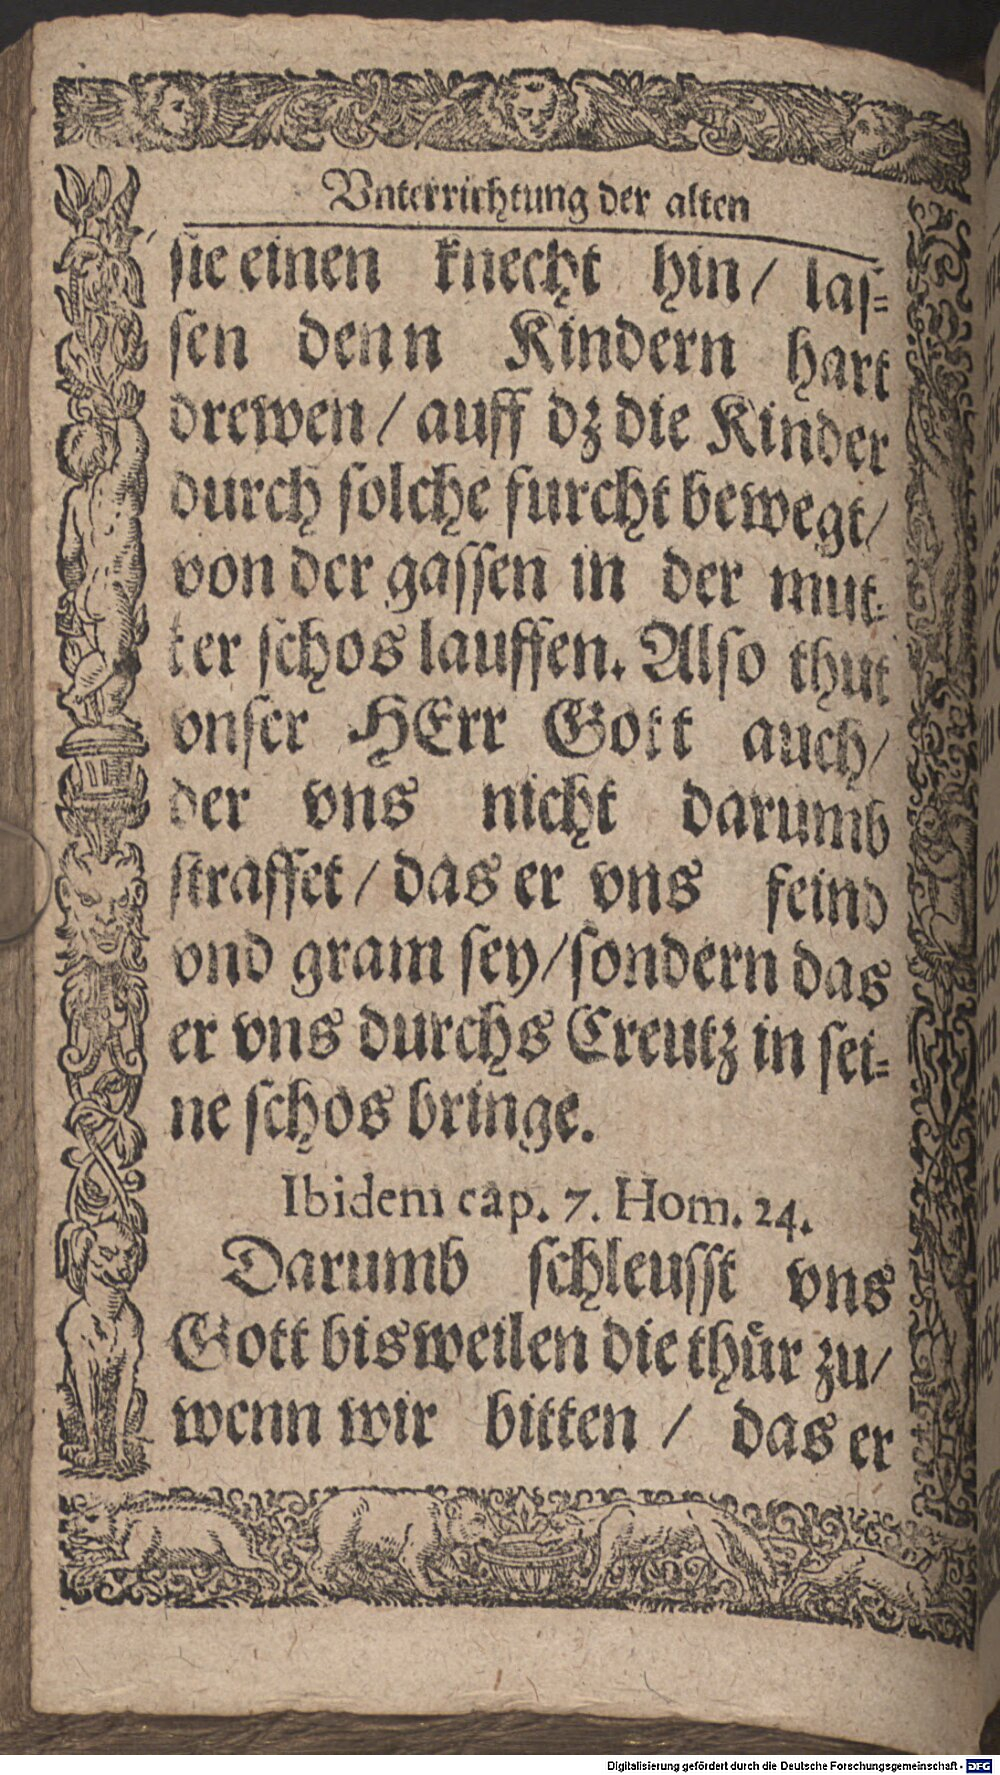 Vnterrichtung der alten
sie einen knecht hin/ las-
sen denn Kindern hart
drewen/ auff dz die Kinder
durch solche furcht bewegt/
von der gassen in der mut-
ter schos lauffen. Also thut
vnser HErr Gott auch/
der vns nicht darumb
straffet/ das er vns feind
vnd gram sey/sondern das
er vns durchs Creutz in sei-
ne schos bringe.
Ibidem cap. 7. Hom. 24.
Darumb schleusst vns
Gott bisweilen die thür zu/
wenn wir bitten/ das er
Digitalisierung gefördert durch die Deutsche Forschungsgemeinschaft - DFG